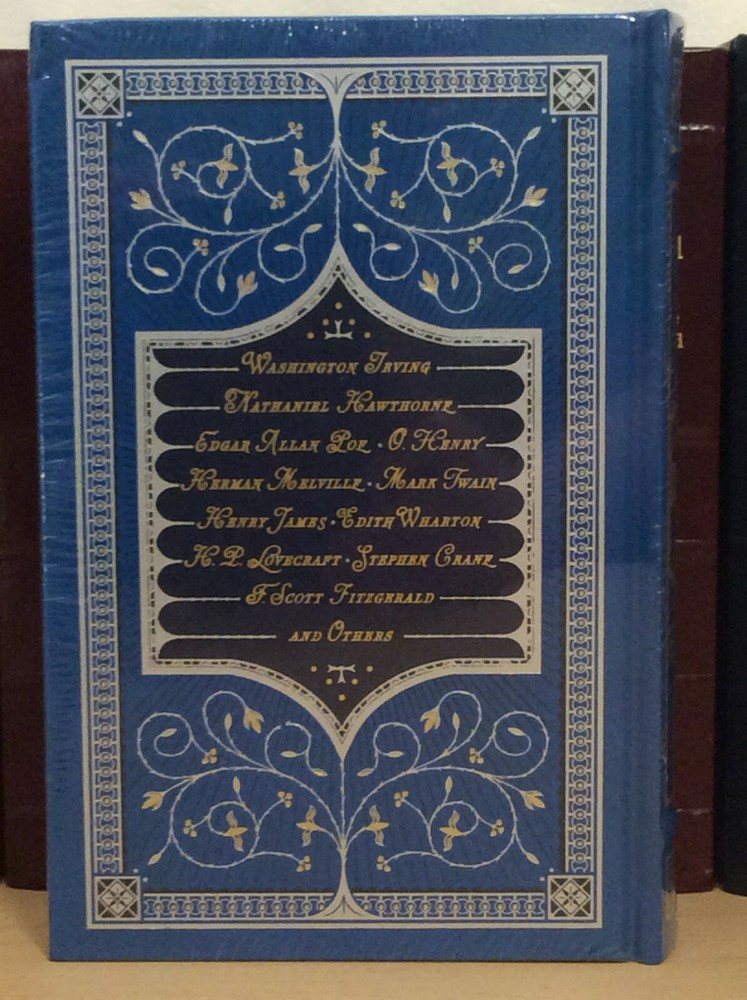 Washington Irving
Nathaniel Hawthorne
Edgar Allan Poe • O. Henry
Herman Melville • Mark Twain
Henry James • Edith Wharton
H. P. Lovecraft • Stephen Crane
F. Scott Fitzgerald
and Others